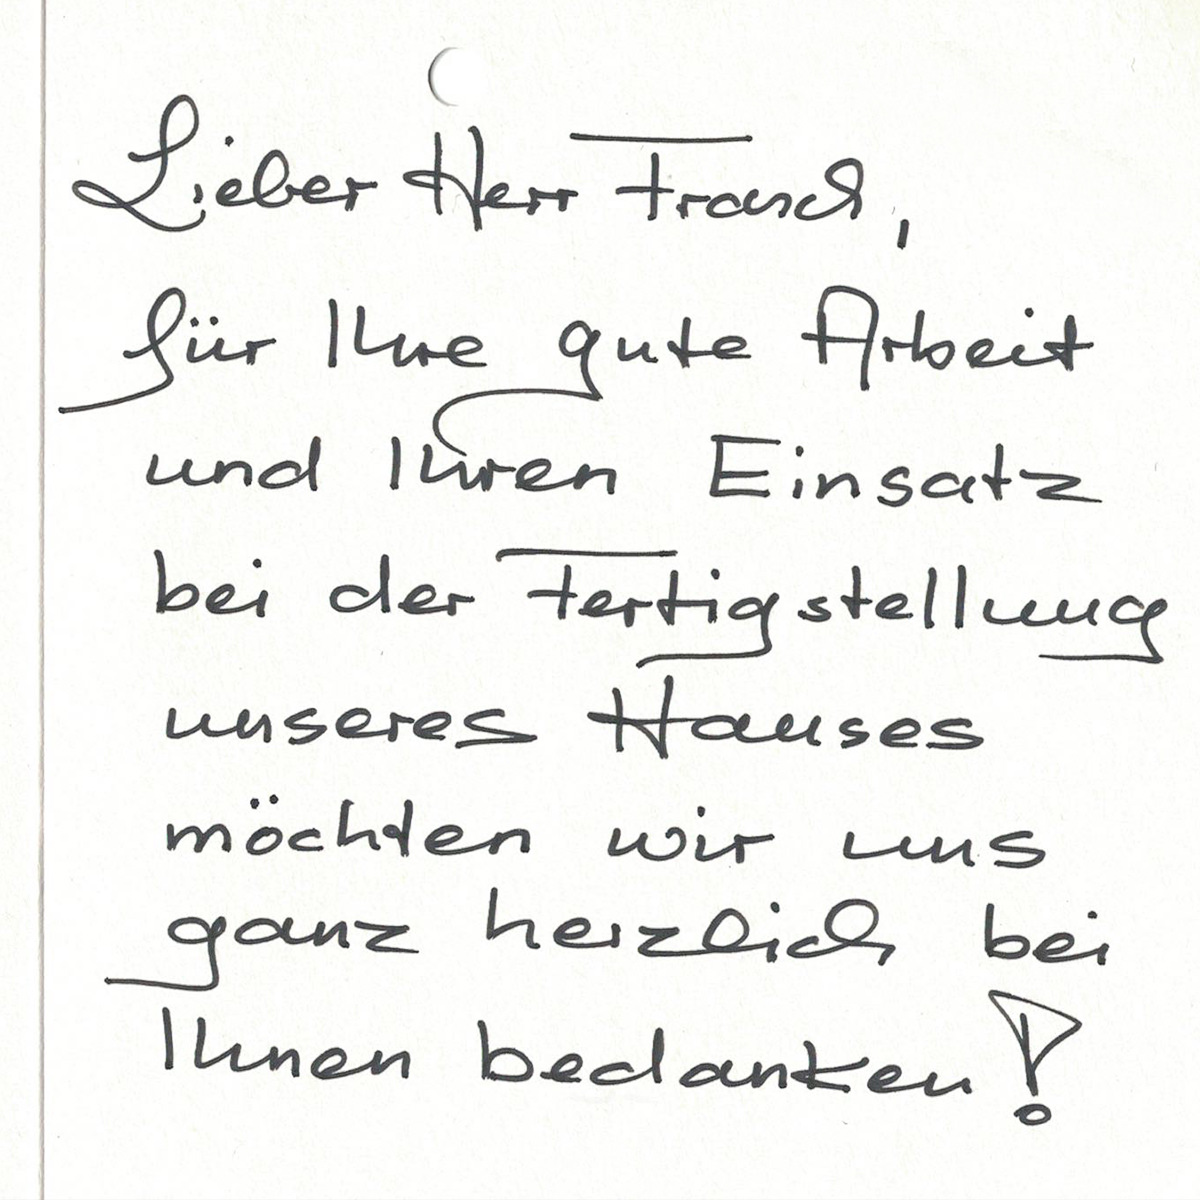 Lieber Herr Frasch,
für Ihre gute Arbeit
und Ihren Einsatz
bei der Fertigstellung
unseres Hauses
möchten wir uns
ganz herzlich bei
Ihnen bedanken!